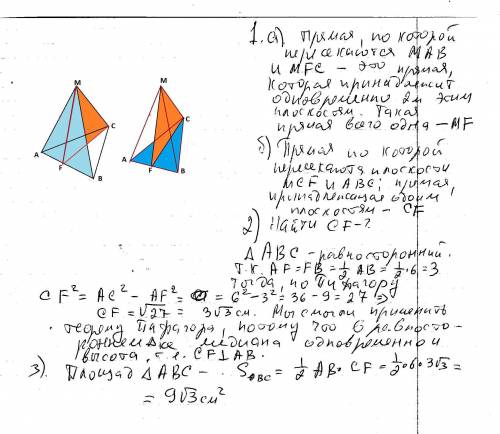 M
M
C
C
A
A
F
B
F
B
1. а) Прямая, по которой
пересекаются MAB
и MFC – это прямая,
которая принадлежит
одновременно 2м этим
плоскостям. Такая
прямая всего одна – MF
б) Прямая по которой
пересекаются плоскости
MCF и ABC; прямая,
принадлежащая обоим
плоскостям – CF
2) Найти CF-?
△ABC – равносторонний.
Т.к. AF = FB = 1/2 AB = 1/2·6 = 3
Тогда, по Пифагору
CF² = AC² - AF² = = 6² - 3² = 36 - 9 = 27 ⇒
CF = √27 = 3√3 см. Мы смогли применить
теорему Пифагора, потому что в равносто-
роннем △ке медиана одновременно и
высота, т.е. CF⊥AB.
3) Площад △ABC – S△ABC = 1/2 AB · CF = 1/2·6·3√3 =
= 9√3 см²